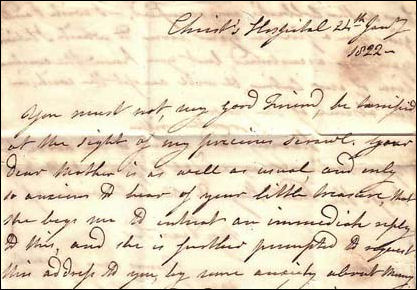 Christ's Hospital 24th Jany
1822 –
You must not, my good Friend, be terrified
at the sight of my precious scrawl. Your
dear Mother is as well as usual, and only
so anxious to hear of your little treasure, that
she begs me to intreat an immediate reply
to this, and she is further prompted to request
this address to you, by some anxiety about